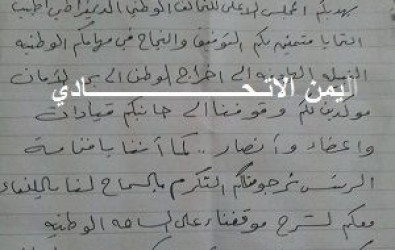 يهديكم المجلس الاعلى للتحالف الوطني الديمقراطي اطيب
التحايا متمنين لكم التوفيق والنجاح في مهامكم الوطنية
النبيلة الى اخراج الوطن الى بر الامان
اليمن الاتحادي
مؤكدين لكم وقوفنا الى جانبكم قيادات
واعضاء وأنصار .. كما أننا يا فخامة
الرئيس نرجو منكم التكرم بالسماح لنا باللقاء
معكم لشرح موقفنا على الساحه الوطنيه